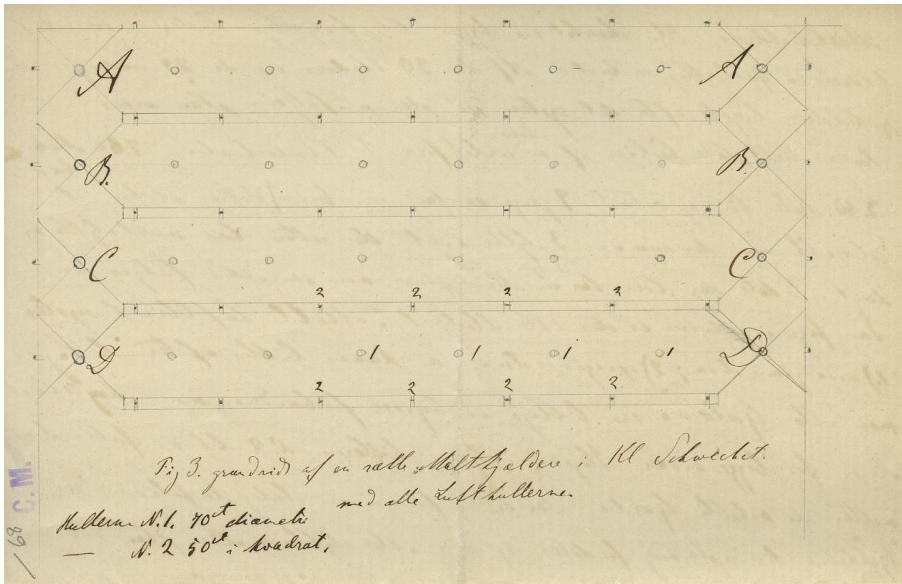 A A
B. B.
C C
2 2 2 2
D 1 1 1 1 D
2 2 2 2.
Fig 3. grundrids af en række Maltkjældere i Kl Schwechat.
med alle Lufthullerne.
Hullerne N. 1. 70ct diameter
— N. 2 50ct i kvadrat.
C. M.
168